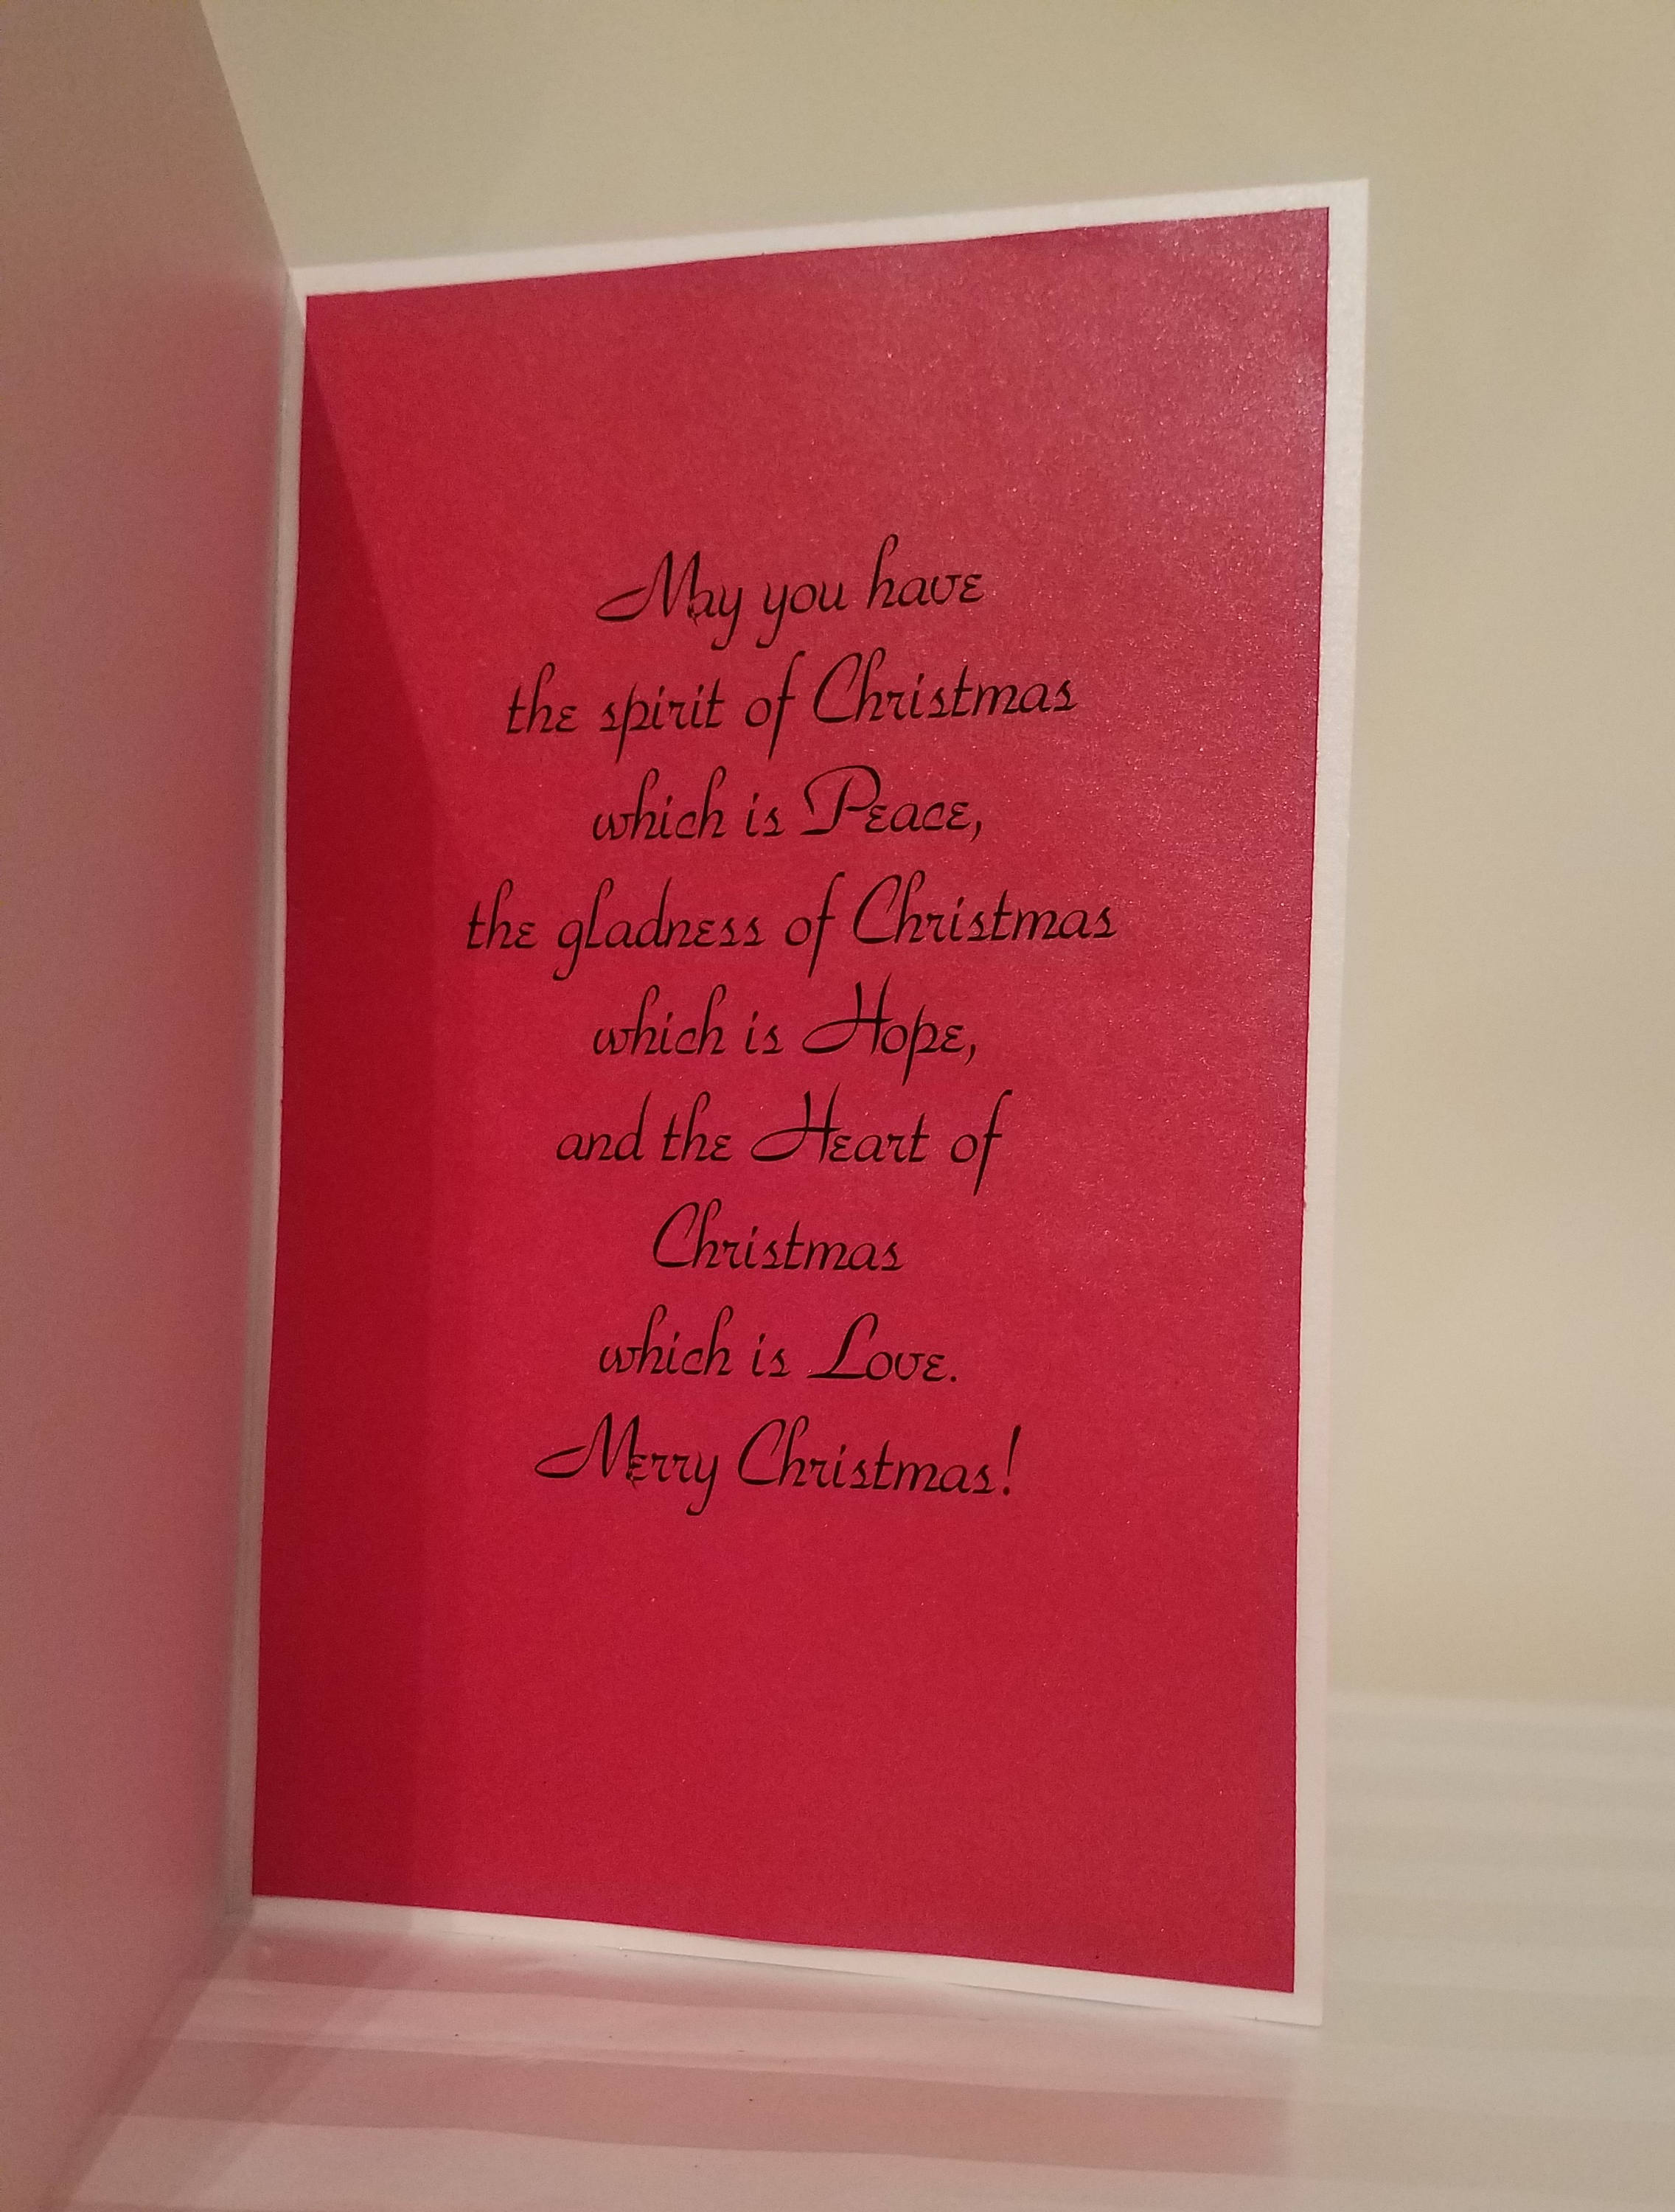 May you have
the spirit of Christmas
which is Peace,
the gladness of Christmas
which is Hope,
and the Heart of
Christmas
which is Love.
Merry Christmas!